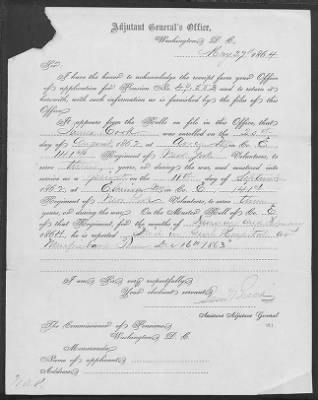 Adjutant General's Office,
Washington, D. C.
May 27th, 1864
Sir:
I have the honor to acknowledge the receipt from your Office
of application for Pension No. and to return it
herewith, with such information as is furnished by the files of this
Office.
It appears from the Rolls on file in this Office, that
James Cook was enrolled on the 20th
day of August, 1862, at in Co. E,
141st Regiment of New York Volunteers, to
serve three years, or during the war, and mustered into
service as a private on the 11th day of September,
1862, at Elmira, in Co. E, 141st
Regiment of New York Volunteers, to serve three
years, or during the war. On the Muster Roll of Co. E
of that Regiment, for the months of January and February
1864, he is reported Died in Hospital at
Murfreesboro Tenn Dec 16th 1863
I am, Sir, very respectfully,
Your obedient servant,
Assistant Adjutant General.
The Commissioner of Pensions,
Washington, D. C.
Memoranda:
Name of applicant
Address